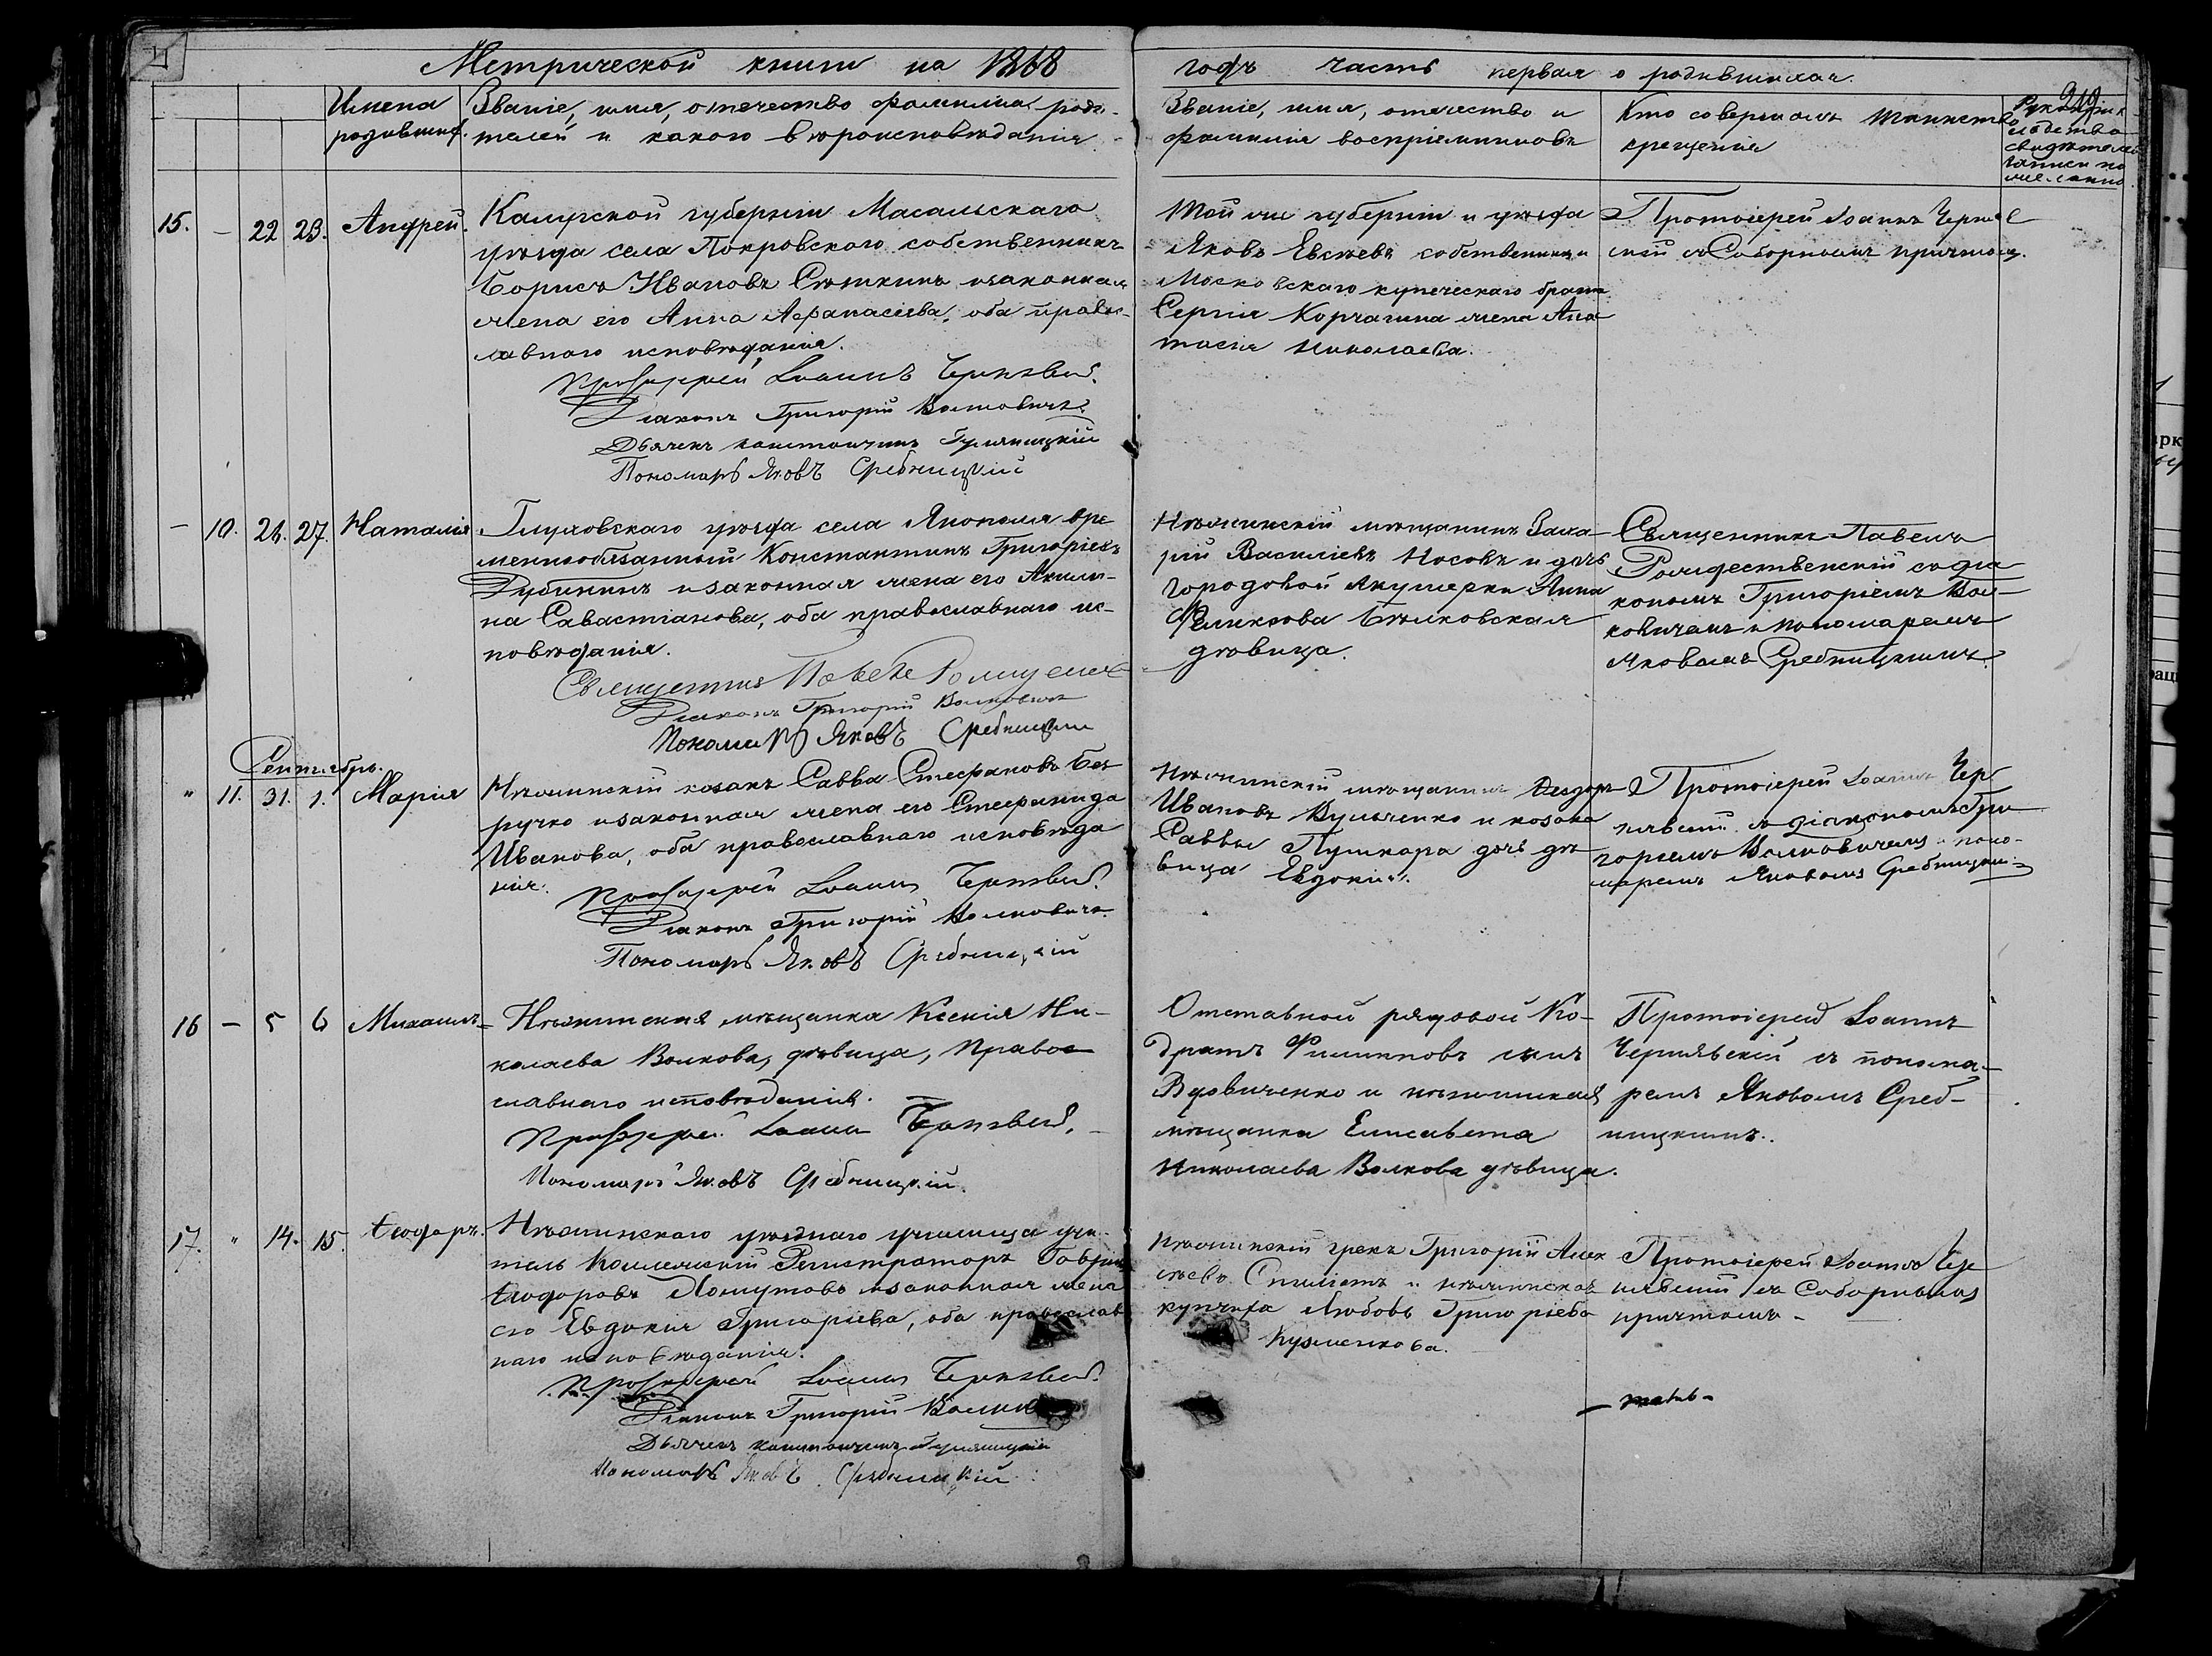 Метрической книги на 1868
годъ часть первая о родившихся.
219
Имена
родившихся.
Званіе, имя, отечество фамилія роди-
телей и какого вѣроисповѣданія
Званіе, имя, отечество и
фамилія воспріемниковъ
Кто совершалъ таинство
крещенія
Рукоприк
свидѣтелей
записи по
желанію
15. — 22 23. Андрей.
Калужской губерніи Масальскаго
уѣзда села Покровскаго собственникъ
Борисъ Ивановъ и законная
жена его Анна Афанасіева, оба право-
славнаго исповѣданія.
Протоіерей Іоаннъ Чернявскій.
Діаконъ Григорій Волковичъ.
Дьячекъ Константинъ
Пономарь Яковъ Сребницкій
Той же губерніи и уѣзда
Яковъ Евсѣевъ собственникъ и
Московскаго купеческаго брата
Сергія Корчагина жена Ана
тасія Николаева.
Протоіерей Іоаннъ Черняв
скій съ Соборнымъ причтомъ.
— 10. 26. 27. Наталія
Глуховскаго уѣзда села Янополя вре
меннообязанный Константинъ Григоріевъ
Дубининъ и законная жена его Акили-
на Савастіанова, оба православнаго ис-
повѣданія.
Священникъ Павелъ
Діаконъ Григорій Волковичъ
Пономарь Яковъ Сребницкій
Нѣжинскій мѣщанинъ Заха-
рій Василіевъ Носовъ и дочь
городовой акушерки Анна
Феликсова Бѣлковская
дѣвица.
Священникъ Павелъ
Рождественскій съ діа
кономъ Григоріемъ Вол-
ковичемъ и пономаремъ
Яковомъ Сребницкимъ.
Сентябрь.
" 11. 31. 1. Марія
Нѣжинскій козакъ Савва Стефановъ Без
ручко и законная жена его Стефанида
Иванова, оба православнаго исповѣда
нія.
Протоіерей Іоаннъ Чернявскій.
Діаконъ Григорій Волковичъ.
Пономарь Яковъ Сребницкій
Нѣжинскій мѣщанинъ Ѳеодоръ
Ивановъ Кульченко и козака
Саввы Пушкара дочь дѣ
вица Евдокія.
Протоіерей Іоаннъ Чер
нявскій съ діакономъ Гри
горіемъ Волковичемъ и поно-
маремъ Яковомъ Сребницкимъ
16 — 5 6 Михаилъ
Нѣжинская мѣщанка Ксенія Ни-
колаева Волкова, дѣвица, Право-
славнаго исповѣданія.
Протоіерей Іоаннъ Чернявскій.
Пономарь Яковъ Сребницкій.
Отставной рядовой Ко-
дратъ Филипповъ сынъ
Вдовиченко и нѣжинская
мѣщанка Елисавета
Николаева Волкова дѣвица.
Протоіерей Іоаннъ
Чернявскій съ понома-
ремъ Яковомъ Среб-
ницкимъ.
17. " 14. 15. Ѳеодоръ.
Нѣжинскаго уѣзднаго училища учи-
тель Коллежскій Регистраторъ Гавріилъ
Ѳеодоровъ и законная жена
его Евдокія Григоріева, оба православ
наго исповѣданія.
Протоіерей Іоаннъ Чернявскій.
Діаконъ Григорій Волковичъ
Дьячекъ Константинъ
Пономарь Яковъ Сребницкій
Нѣжинскій грекъ Григорій Алек
сѣевъ и нѣжинская
купчиха Любовь Григоріева
Кузменкова.
Протоіерей Іоаннъ Чер
нявскій съ Соборнымъ
причтомъ.